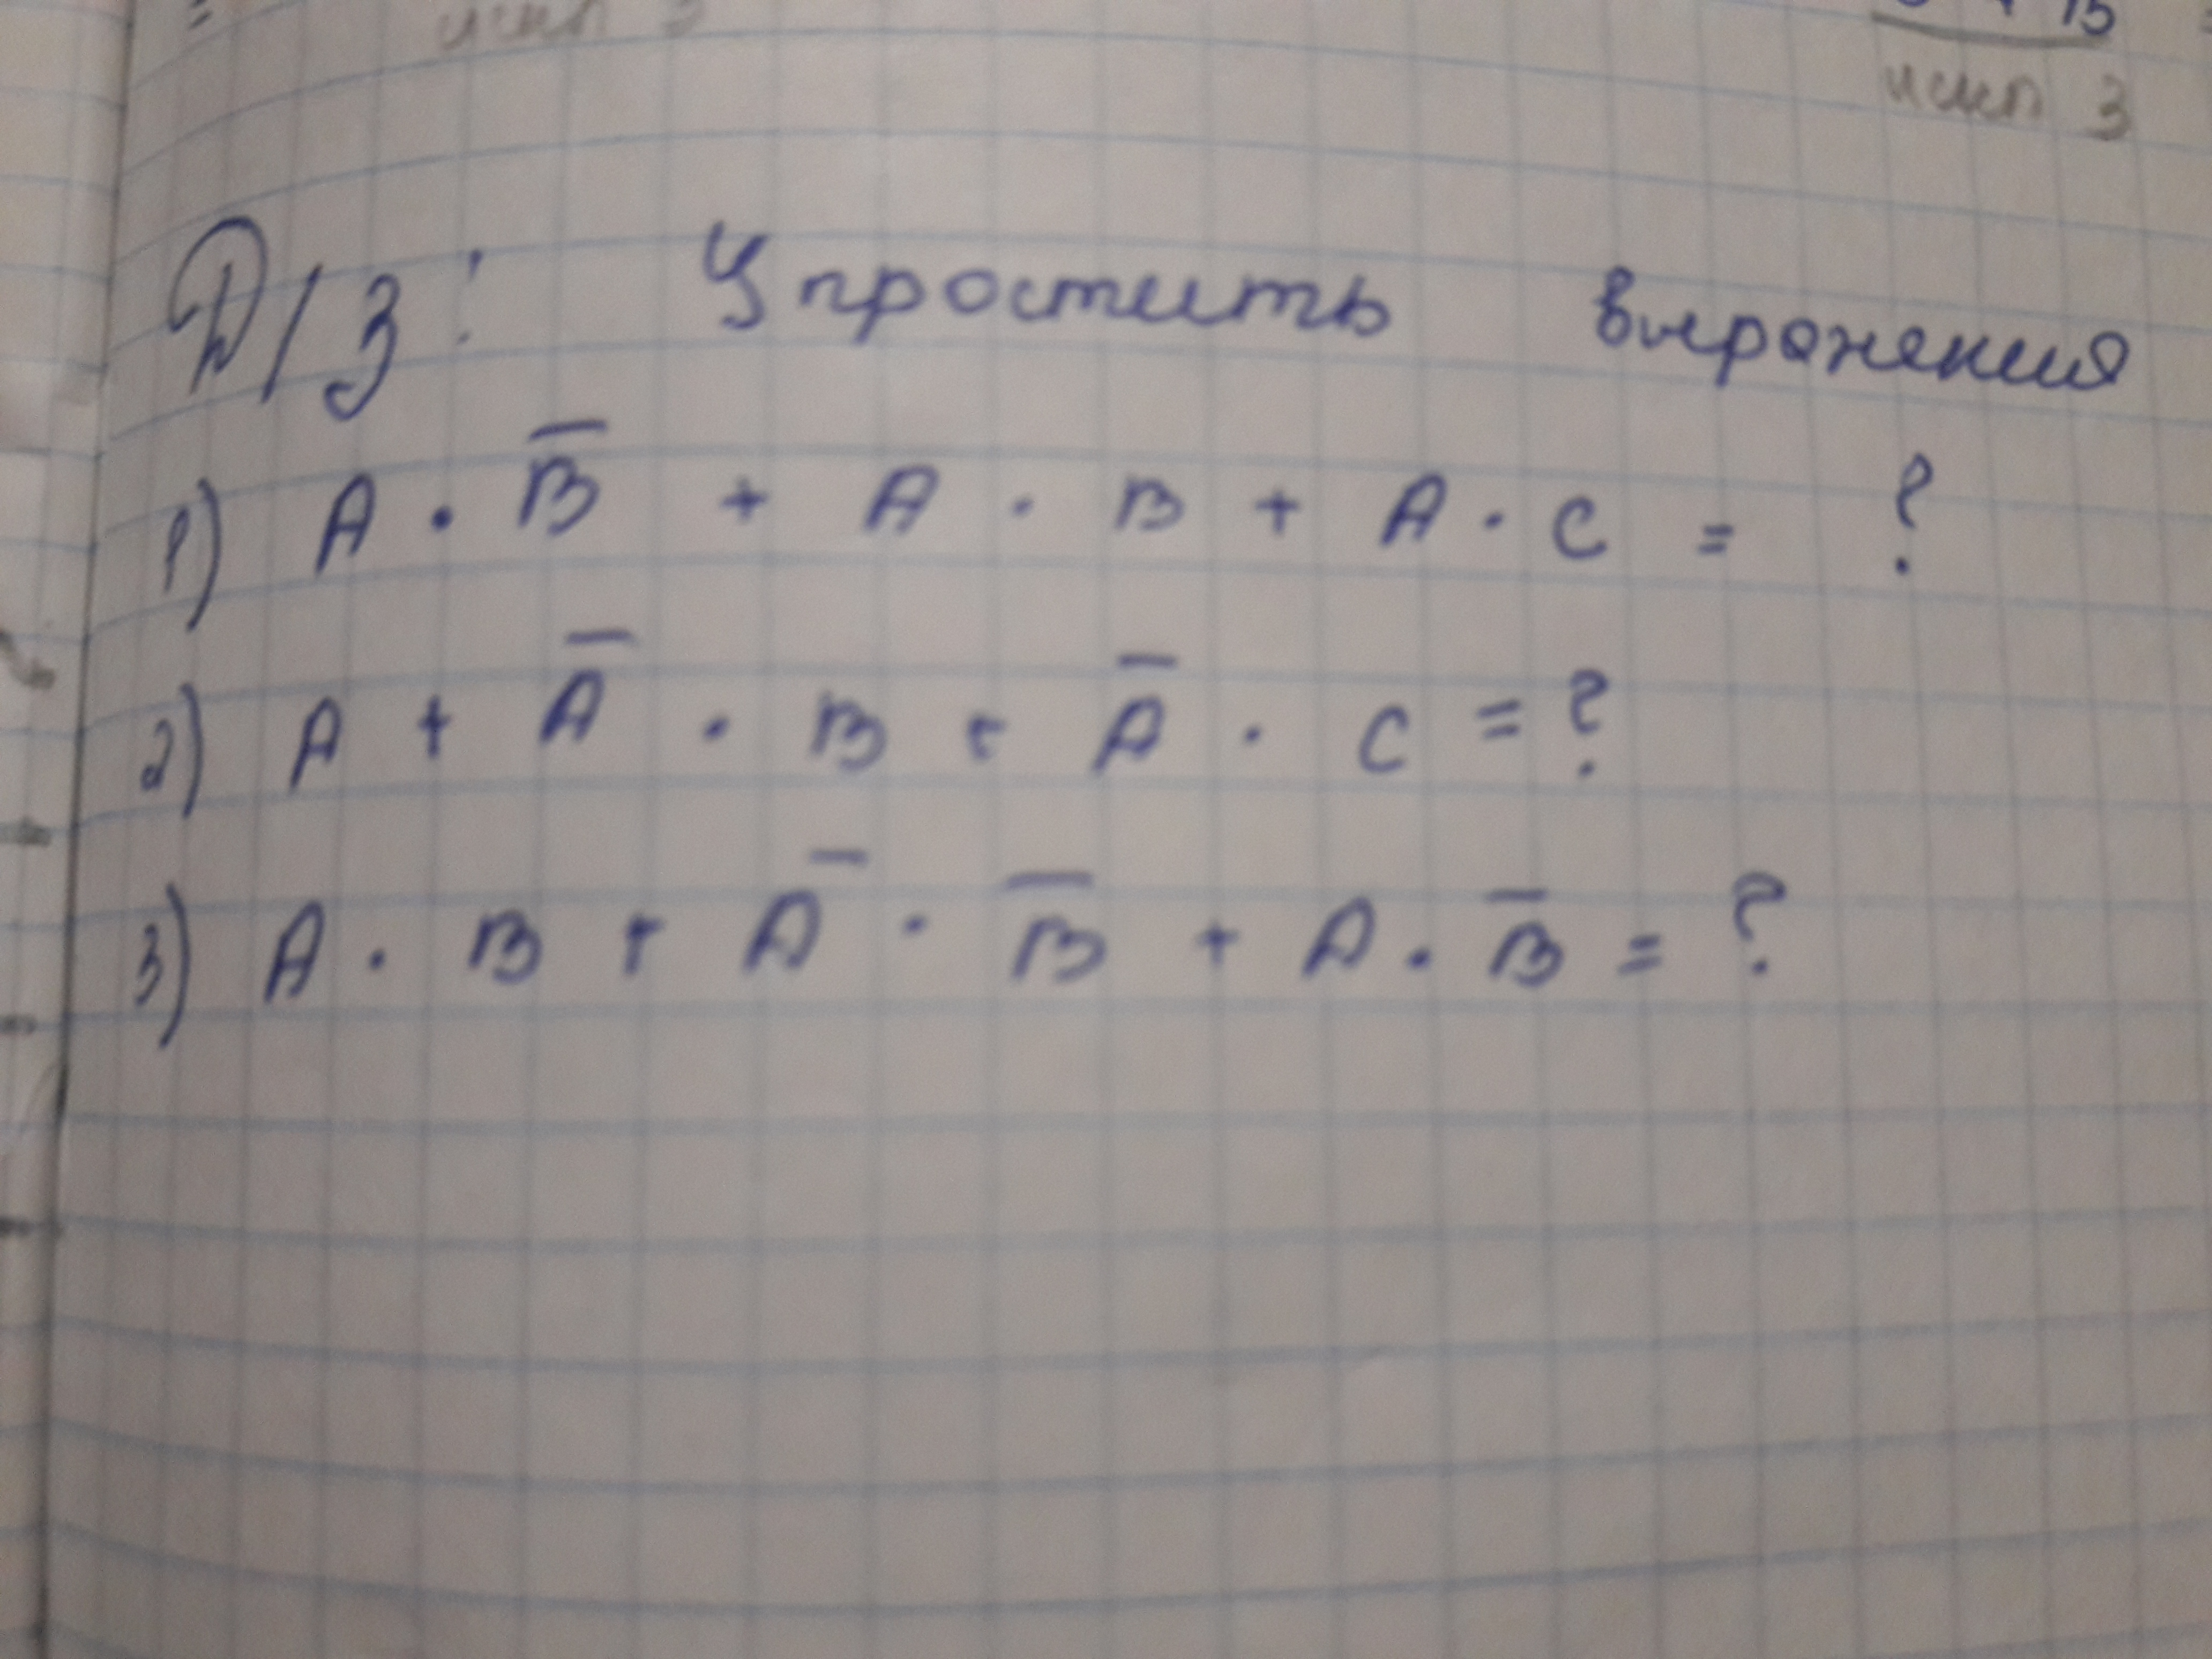 исп 3
Д/З: Упростить выражения
1) A · B̅ + A · B + A · C = ?
2) A + A̅ · B + A̅ · C = ?
3) A · B + A̅ · B̅ + A · B̅ = ?